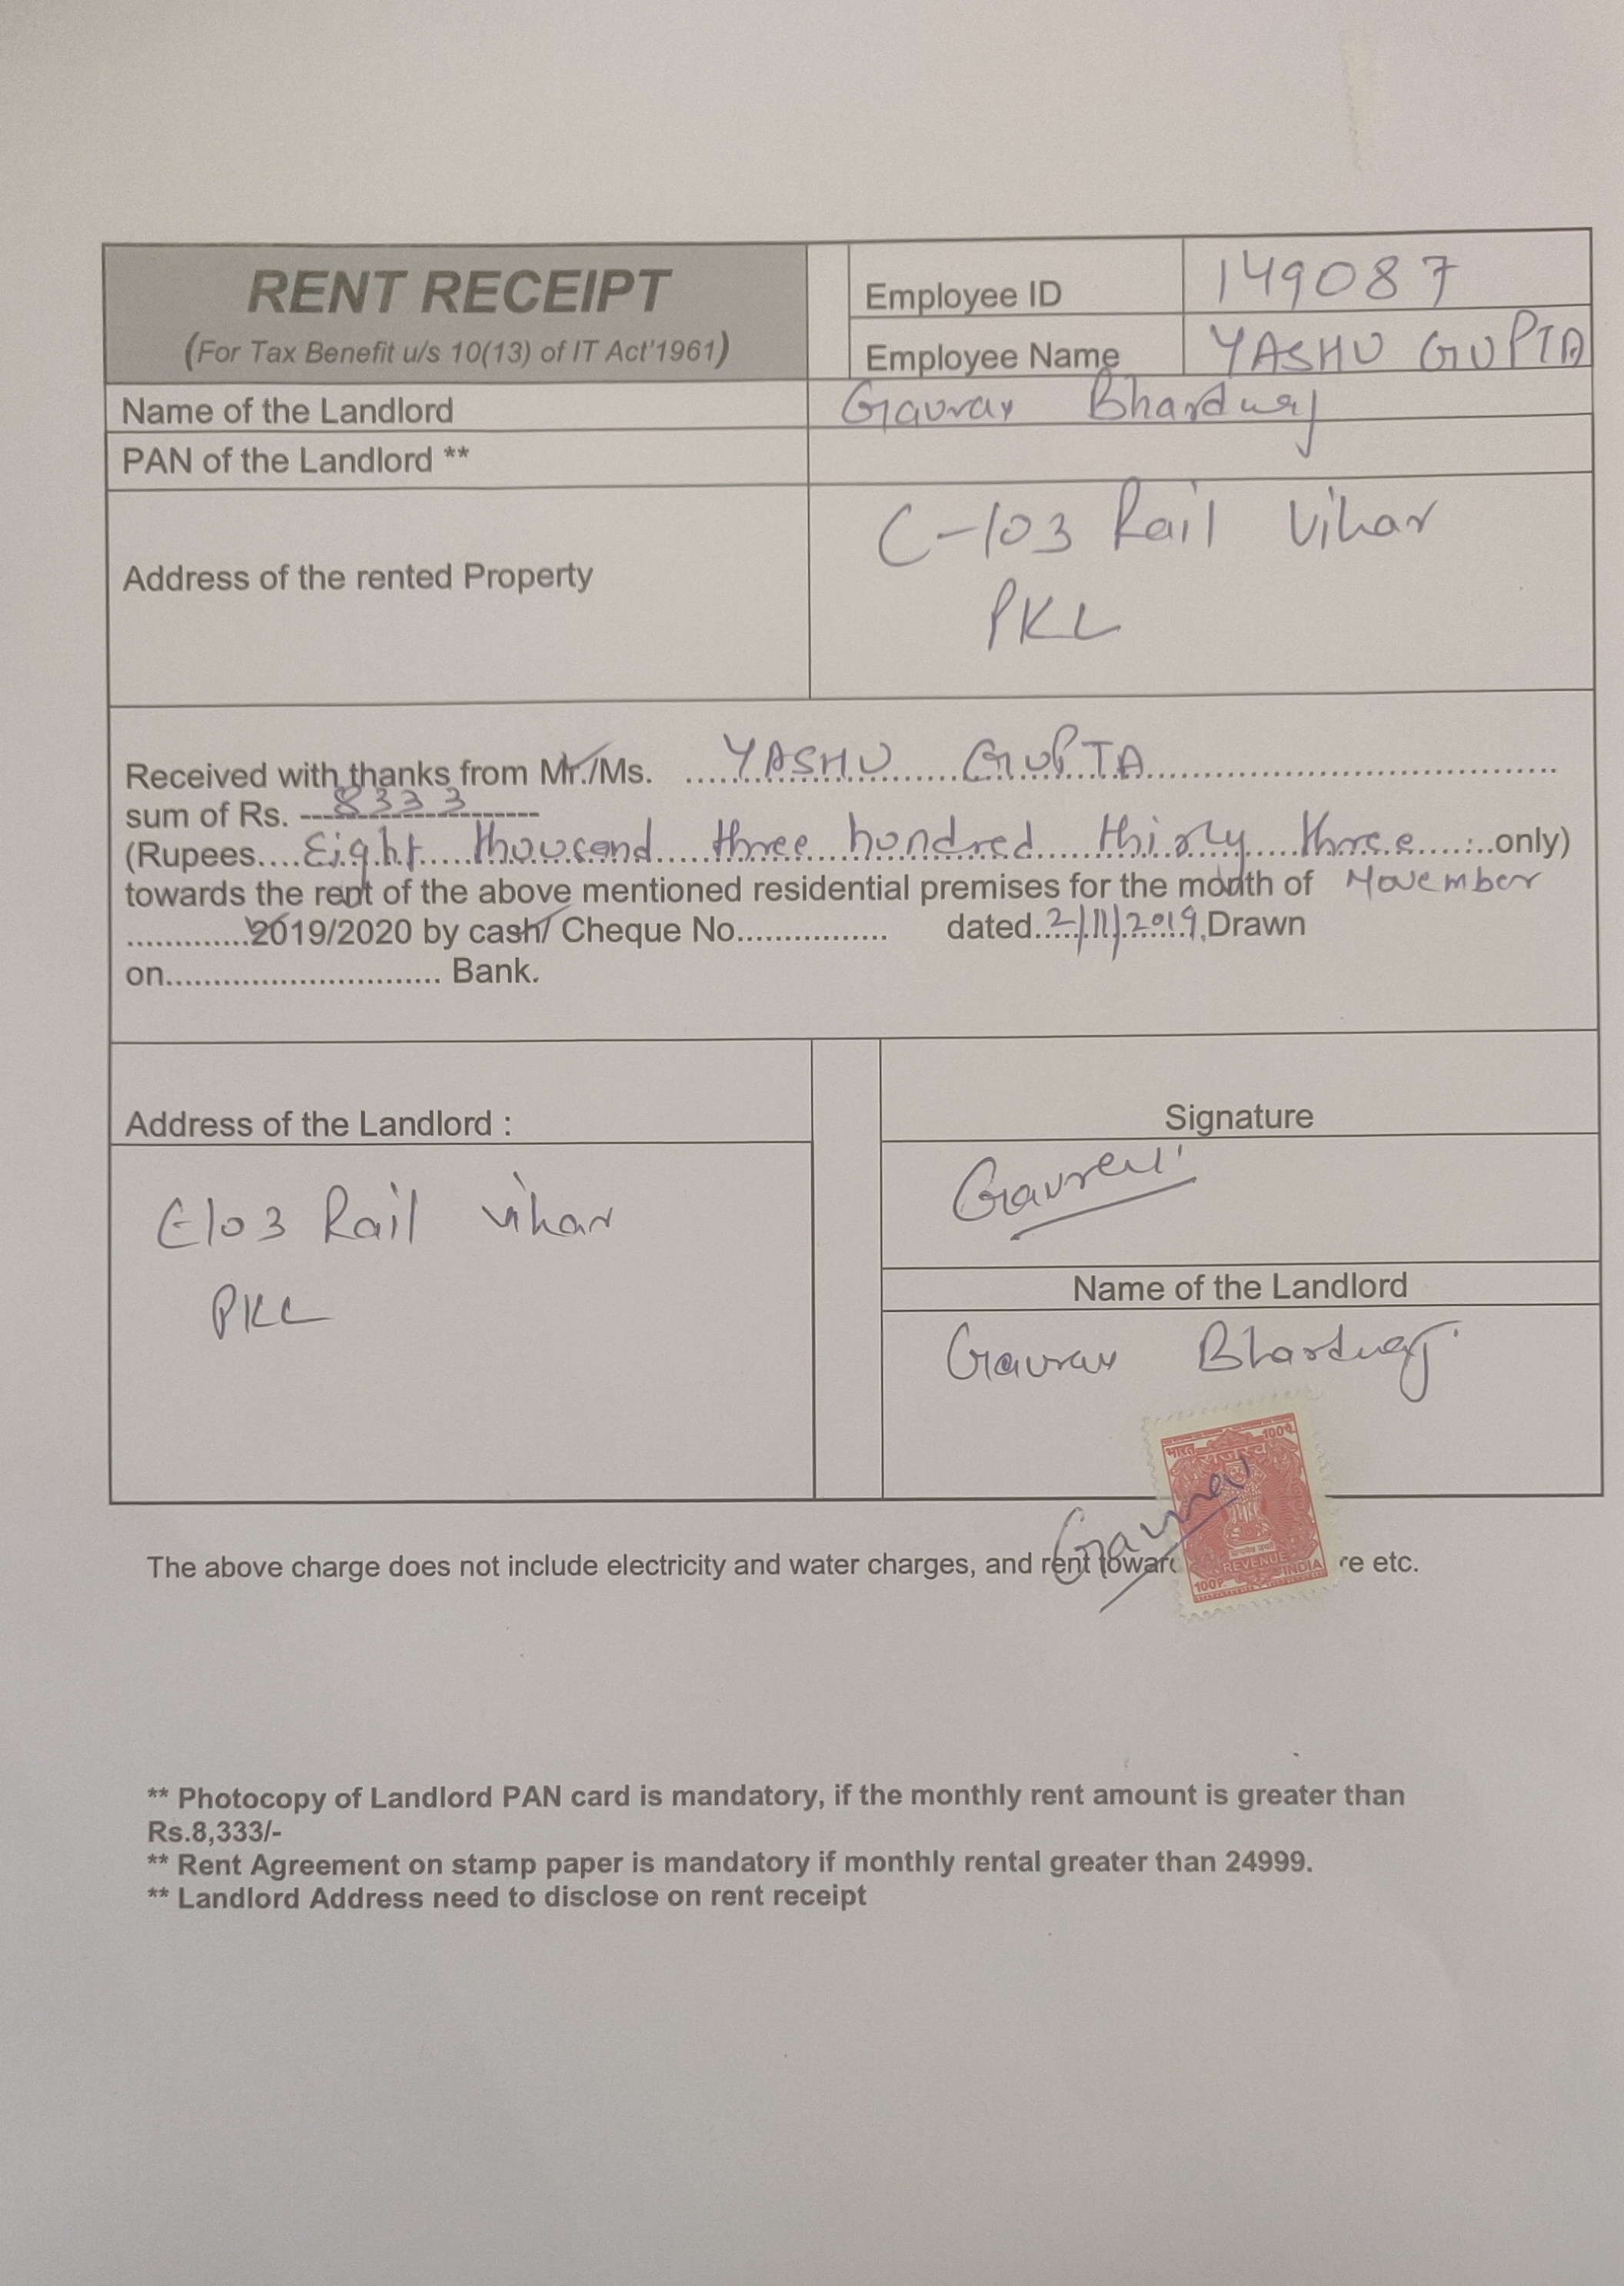 RENT RECEIPT
(For Tax Benefit u/s 10(13) of IT Act'1961)
Employee ID 149087
Employee Name YASHU GUPTA
Name of the Landlord Gaurav Bhardwaj
PAN of the Landlord **
Address of the rented Property C-103 Rail Vihar
PKL
Received with thanks from Mr./Ms. YASHU GUPTA
sum of Rs. 8333
(Rupees Eight thousand three hundred thirty three only)
towards the rent of the above mentioned residential premises for the month of November
2019/2020 by cash/ Cheque No................ dated 2/11/2019, Drawn
on............................. Bank.
Address of the Landlord :
C-103 Rail vihar
PKL
Signature
Gaurav
Name of the Landlord
Gaurav Bhardwaj
भारत 100प.
राजस्व
सत्यमेव जयते
REVENUE
100P. INDIA
Gaurav
The above charge does not include electricity and water charges, and rent towar re etc.
** Photocopy of Landlord PAN card is mandatory, if the monthly rent amount is greater than
Rs.8,333/-
** Rent Agreement on stamp paper is mandatory if monthly rental greater than 24999.
** Landlord Address need to disclose on rent receipt